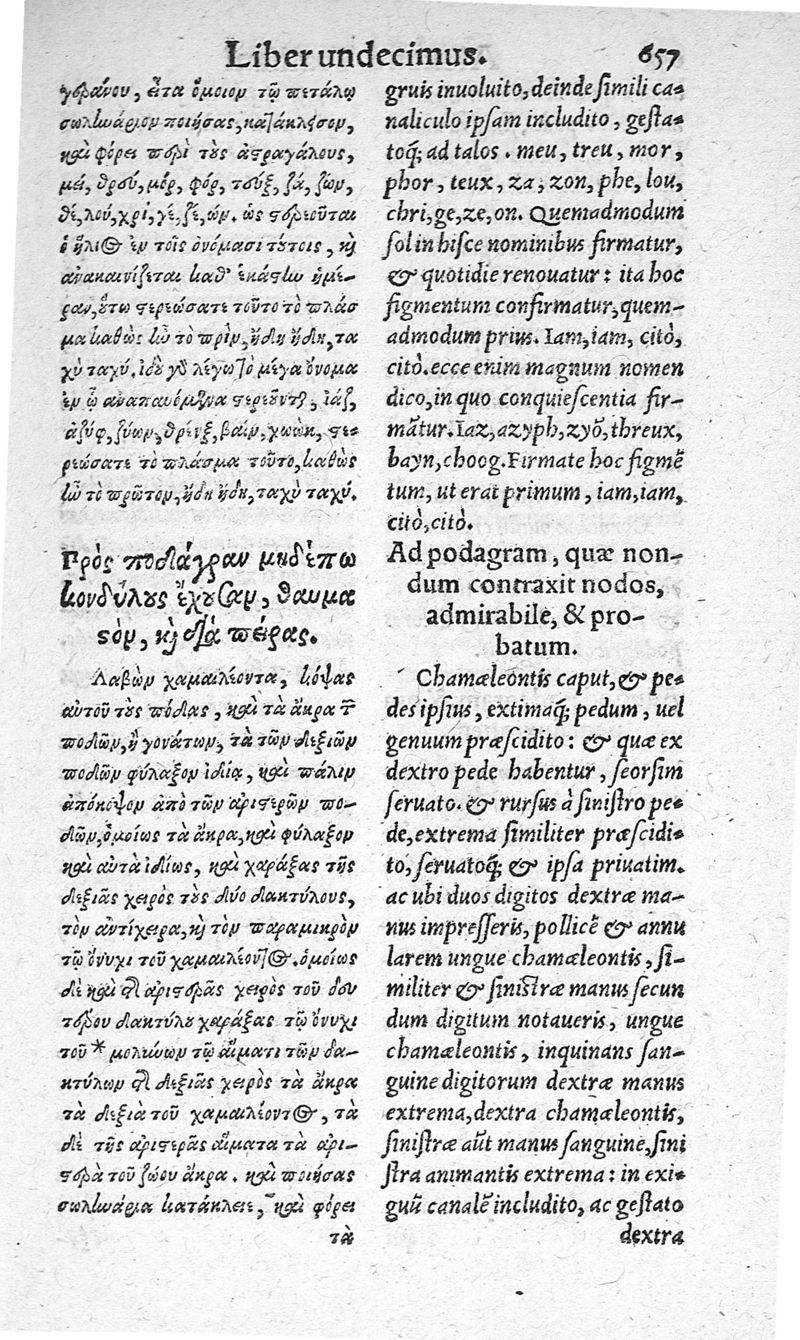 Liber undecimus. 657
γεράνου, εἶτα ὅμοιον τῷ πετάλῳ
σωληνάριον ποιήσας, κατάκλεισον,
καὶ φόρει περὶ τοὺς ἀστραγάλους,
μεὶ, θρεύ, μόρ, φόρ, τεύξ, ζά, ζών,
θέ, λού, χρί, γέ, ζε, ών. ὡς στερεοῦται
ὁ ἥλιος ἐν τοῖς ὀνόμασι τούτοις, καὶ
ἀνακαινίζεται καθ' ἑκάστην ἡμέ-
ραν, οὕτω στερεώσατε τοῦτο τὸ πλάσ
μα καθὼς ἦν τὸ πρὶν, ἤδη ἤδη, τα
χὺ ταχύ. ἰδοὺ γὰρ λέγω τὸ μέγα ὄνομα
ἐν ᾧ ἀναπαυόμενα στερεοῦνται, ἰάζ,
ἀζύφ, ζύων, θρένξ, βαίν, χωὼκ, στε-
ρεώσατε τὸ πλάσμα τοῦτο, καθὼς
ἦν τὸ πρῶτον, ἤδη ἤδη, ταχὺ ταχύ.
Πρὸς ποδάγραν μηδέπω
κονδύλους ἔχουσαν, θαυμα
στὸν, καὶ διὰ πείρας.
Λαβὼν χαμαιλέοντα, κόψας
αὐτοῦ τοὺς πόδας, καὶ τὰ ἄκρα τῶν
ποδῶν, ἢ γονάτων, τὰ τῶν δεξιῶν
ποδῶν φύλαξον ἰδίᾳ, καὶ πάλιν
ἀπόκοψον ἀπὸ τῶν ἀριστερῶν πο-
δῶν, ὁμοίως τὰ ἄκρα, καὶ φύλαξον
καὶ αὐτὰ ἰδίως, καὶ χαράξας τῆς
δεξιᾶς χειρὸς τοὺς δύο δακτύλους,
τὸν ἀντίχειρα, καὶ τὸν παραμικρὸν
τῷ ὄνυχι τοῦ χαμαιλέοντος. ὁμοίως
δὲ καὶ τῆς ἀριστερᾶς χειρὸς τοῦ δευ
τέρου δακτύλου χαράξας τῷ ὄνυχι
τοῦ * μολύνων τῷ αἵματι τῶν δα-
κτύλων τῆς δεξιᾶς χειρὸς τὰ ἄκρα
τὰ δεξιὰ τοῦ χαμαιλέοντος, τὰ
δὲ τῆς ἀριστερᾶς αἵματα τὰ ἀρι-
στερὰ τοῦ ζώου ἄκρα. καὶ ποιήσας
σωληνάρια κατάκλειε, καὶ φόρει
τὰ
gruis inuoluito, deinde simili ca-
naliculo ipsam includito, gesta-
toq́; ad talos. meu, treu, mor,
phor, teux, za, zon, phe, lou,
chri, ge, ze, on. Quemadmodum
sol in hisce nominibus firmatur,
& quotidie renouatur: ita hoc
figmentum confirmatur, quem-
admodum prius. Iam, iam, citò,
citò. ecce enim magnum nomen
dico, in quo conquiescentia fir-
mãtur. Iaz, azyph, zyõ, threux,
bayn, choog. Firmate hoc figmẽ
tum, ut erat primum, iam, iam,
citò, citò.
Ad podagram, quæ non-
dum contraxit nodos,
admirabile, & pro-
batum.
Chamæleontis caput, & pe-
des ipsius, extimaq́; pedum, uel
genuum præscidito: & quæ ex
dextro pede habentur, seorsim
seruato. & rursus à sinistro pe-
de, extrema similiter præscidi-
to, seruatoq́; & ipsa priuatim.
ac ubi duos digitos dextræ ma-
nus impresseris, pollicẽ & annu
larem ungue chamæleontis, si-
militer & sinistræ manus secun
dum digitum notaueris, ungue
chamæleontis, inquinans san-
guine digitorum dextræ manus
extrema, dextra chamæleontis,
sinistræ aũt manus sanguine, sini
stra animantis extrema: in exi-
guũ canalẽ includito, ac gestato
dextra